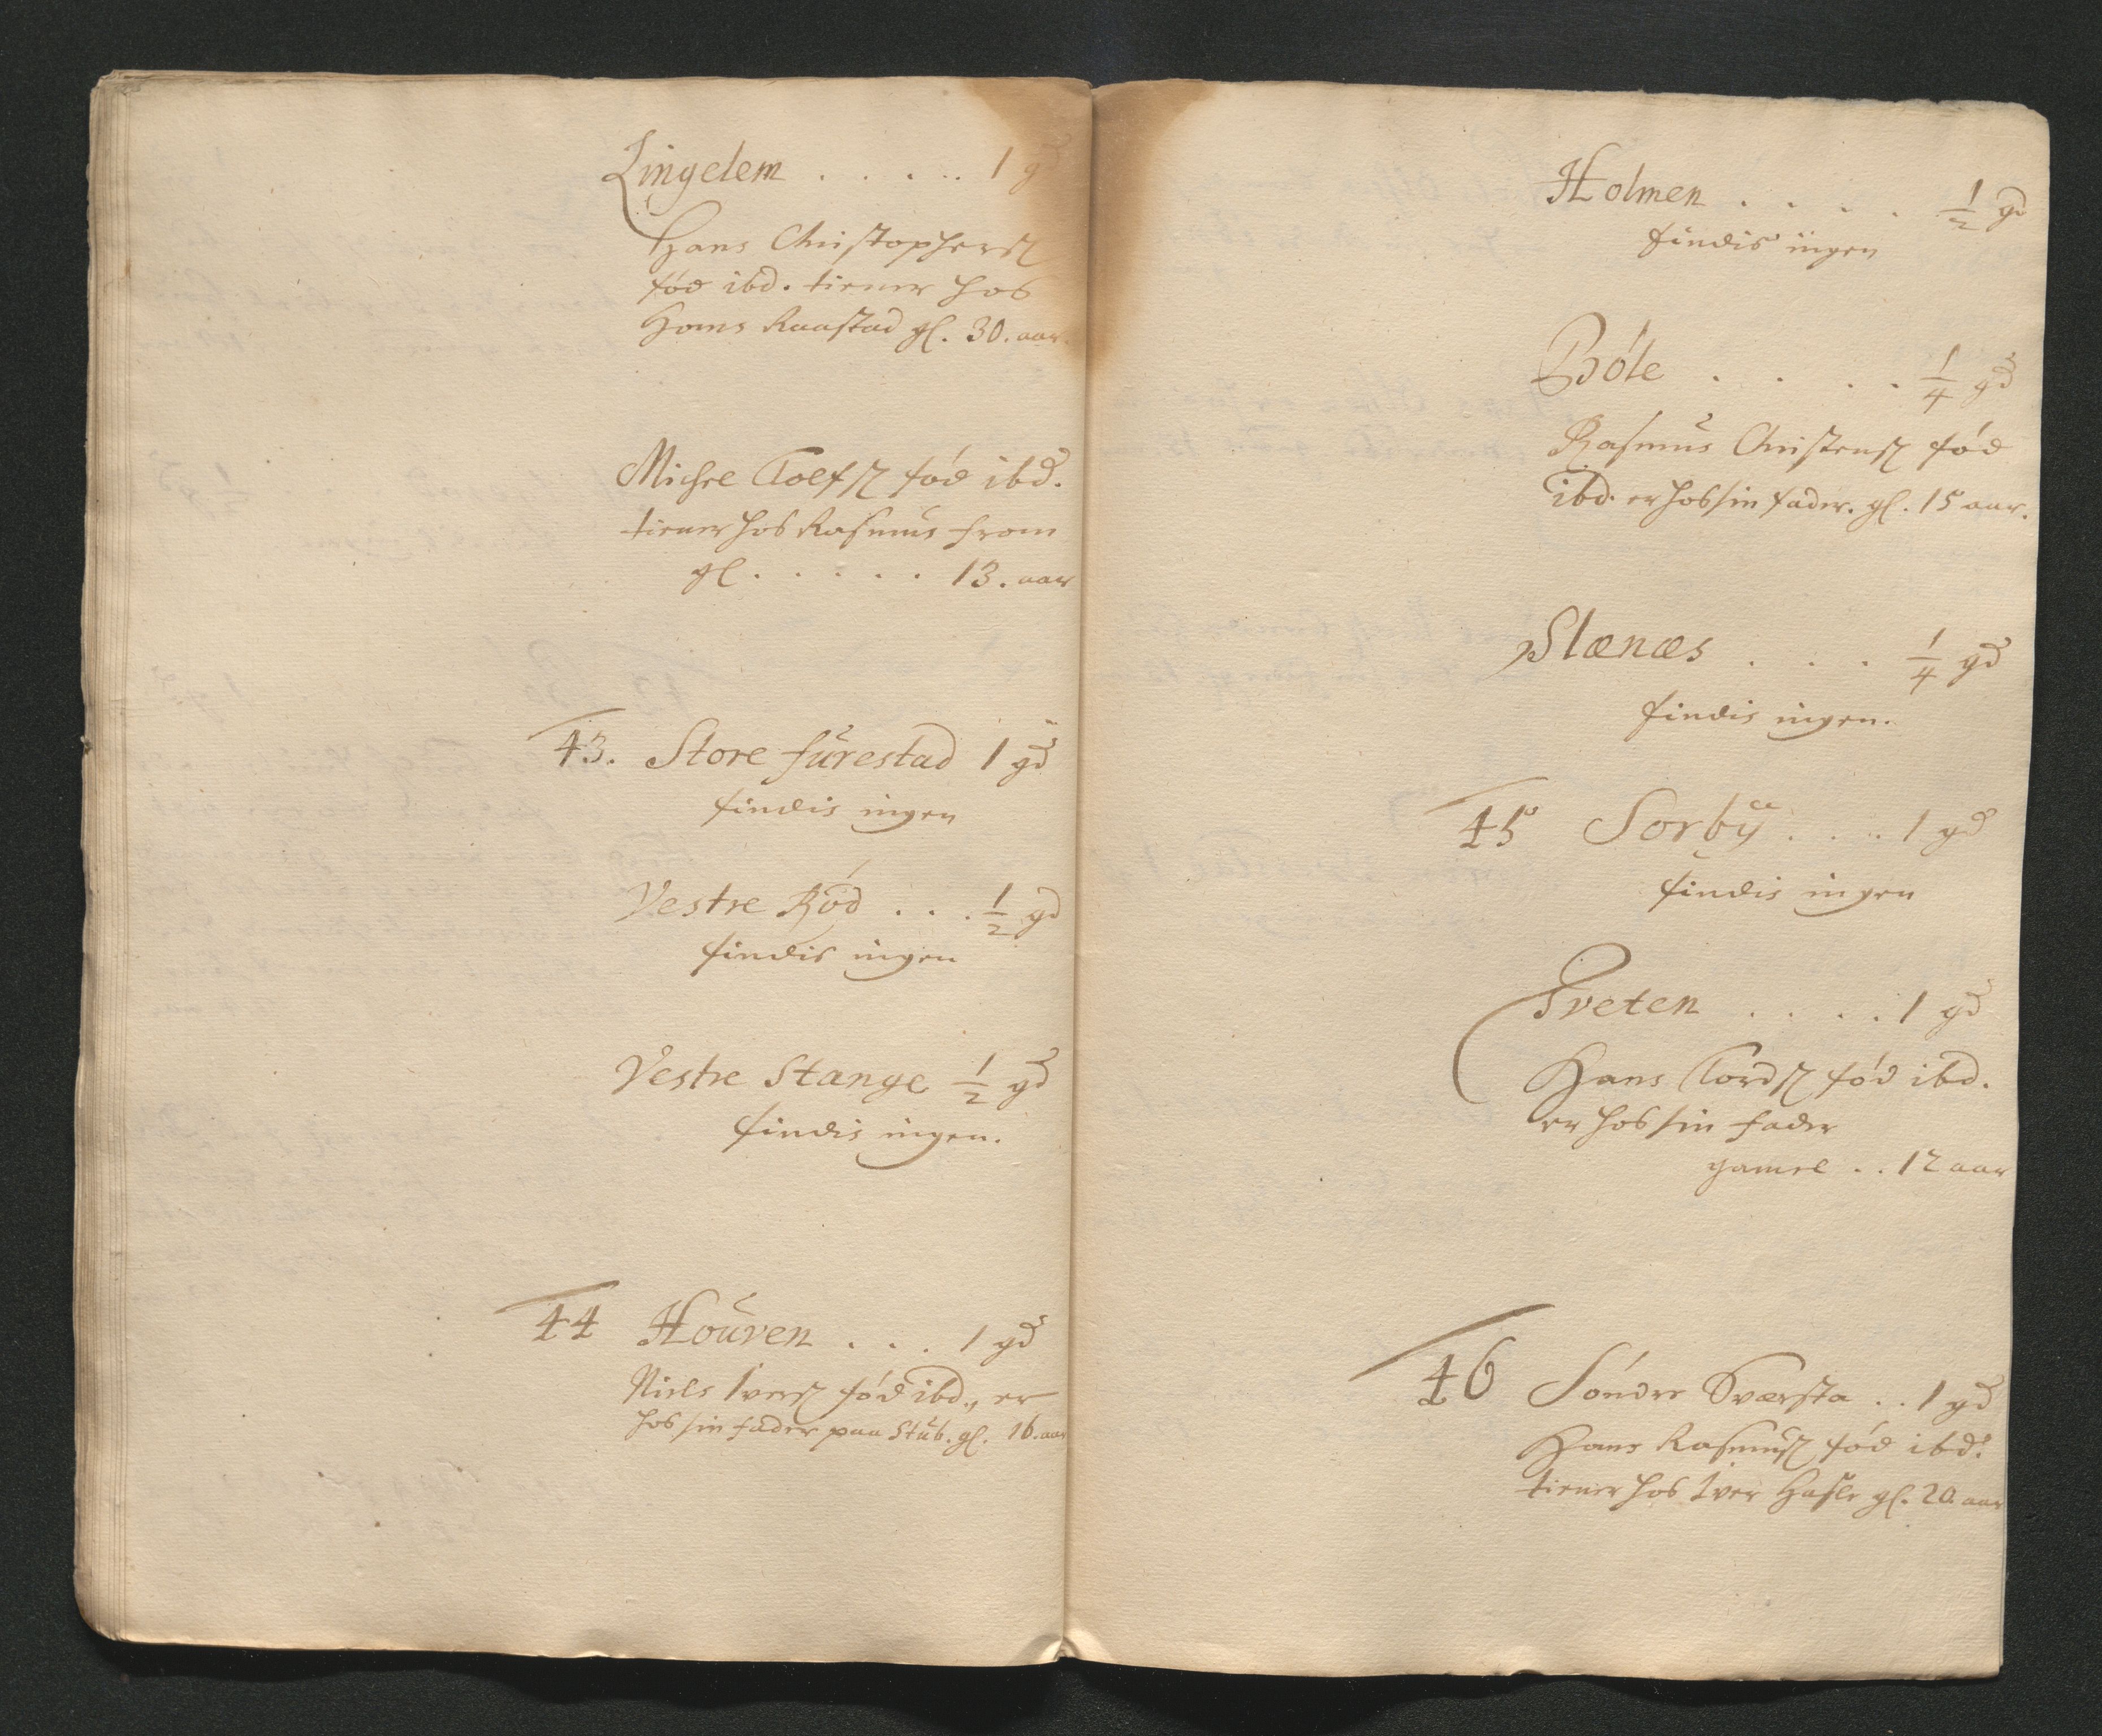 Lingelem . . . . . 1 gd
Hans Christophersß
fød ibd. tiener hos
Hans Raastad gl. 30. aar.
Michel Tolfsß fød ibd.
tiener hos Rasmus from
gl . . . . . 13. aar
43. Store furestad 1 gd
findis ingen
Vestre Rød . . . 1/2 gd
findis ingen
Vestre Stange 1/2 gd
findis ingen.
44 Houven . . . 1 gd
Niels Iversß fød ibd., er
hos sin fader paa Stub. gl. 16. aar
Holmen . . . . . 1/2 gd
findis ingen
Bóle . . . . 1/4 gd
Rasmus Christensß fød
ibd. er hos sin fader. gl. 15 aar.
Slænæs . . . 1/4 gd
findis ingen.
45 Sorbÿ . . . . 1 gd
findis ingen
Tveten . . . . 1 gd
Hans Tordsß fød ibd.
er hos sin fader
gamel . . 12 aar
46 Sóndre Sværsta . . 1 gd
Hans Rasmusß fød ibd.
tiener hos Iver Hasle gl. 20. aar